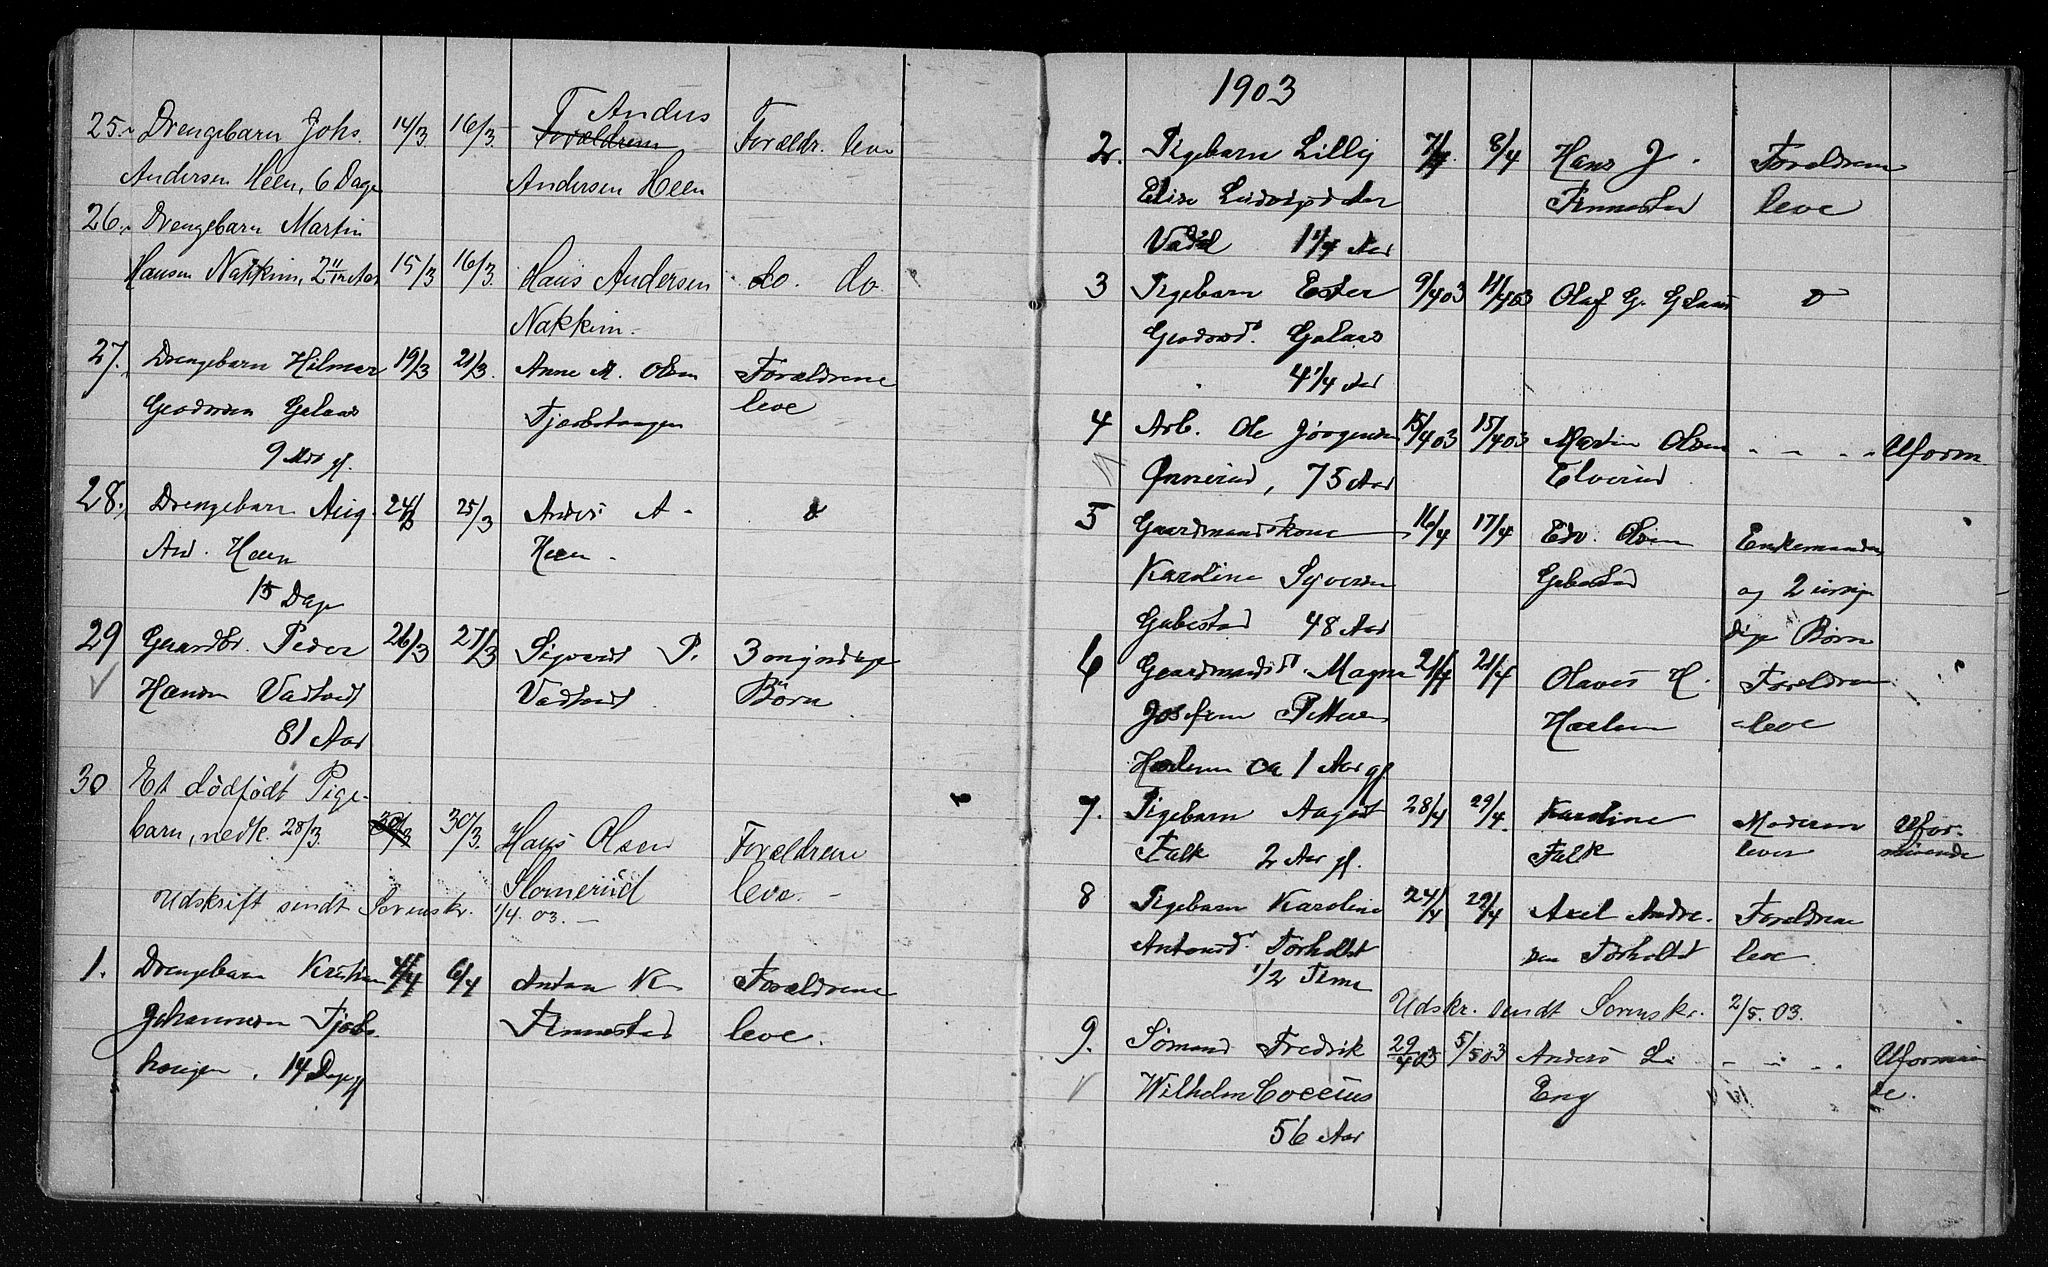 25. Drengebarn Johs. 14/3 16/3 Anders Forældr. leve
Andersen Heen, 6 Dage Andersen Heen
26. Drengebarn Martin
Hansen Nakkim, 2 11/12 Aar 15/3 16/3 Hans Andersen do. do.
Nakkim.
27. Drengebarn Hilmar 19/3 21/3 Anne M. Olsen Forældrene
leve
9 Mdr gl.
28. Drengebarn Aug. 24/3 25/3 Anders A
And. Heen Heen
15 Dage
29 Gaardbr. Peder 26/3 27/3 Sigvard P. 3 myndige
Hansen Børn
81 Aar
30 Et dödfödt Pige-
barn, nedk. 28/3. 30/3 30/3. Hans Olsen Forældrene
Slomerud leve.
Udskrift sendt Sorenskr. 1/4. 03.
1. Drengebarn Kristian 4/4 6/4 Anton K Forældrene
Johannesen Finnestad leve.
14 Dage gl
1903
2. Pigebarn Lilly 7/4 8/4 Hans J. Forældrene
Elise Finnestad leve
1 1/4 Aar
3 Pigebarn Ester 9/4 03 11/4 03 Olaf G.
4 1/4 Aar
4 Arb. Ole Jörgensen 15/4 03 Martin Olsen " " " Uform.
75 Aar Elverud
5 Gaardmandskone 16/4 17/4 Edv. Olsen Enkemanden
Karoline Syversen Gubestad og 2
Gubestad 48 Aar Børn
6 Magna 21/4 Olaves H. Forældrene
Josefine Pettersen Haslum leve
Haslum ca 1 Aar gl
7. Pigebarn Aagot 28/4 29/4. Karoline Moderen Ufor-
Falk 2 Aar gl. Falk lever muende
8 Pigebarn Karoline 24/4 29/4 Axel Andre- Forældrene
Torholdt sen Torholdt leve.
1/2 Time
Udskr. sendt Sorenskr. 2/5. 03.
9. Sømand Fredrik 29/4 03 5/5 03 Anders L. " " " Uformuen
Wilhelm Coccius Eng de.
56 Aar